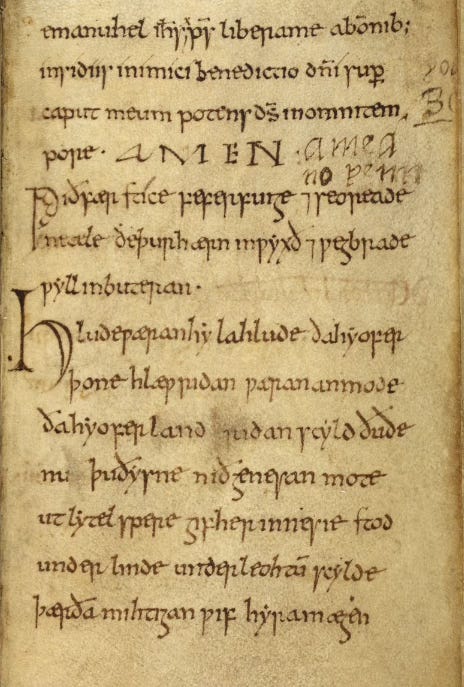 emanuhel ihs xp̄s liberame abōnib;
insidiis inimici benedictio dn̄i sup̄
caput meum potens ds̄ inomnitem
pore · AMEN · amea
no penn
Ƿið fær stice feferfuige ⁊ seoreade
netele ðeþurhærn inƿyxð ⁊ ƿegbrade
ƿyll inbuteran ·
Hludeƿæranhy lahlude ðahyofer
þone hlæƿ ridan ƿæran anmode
ðahyofer land ridan scyld ðuðe
nu þuðysne nið genesan mote
ut lytel spere gif her inne sie stod
under linde under leohtū scylde
þærða mihtigan ƿif hyra mægen